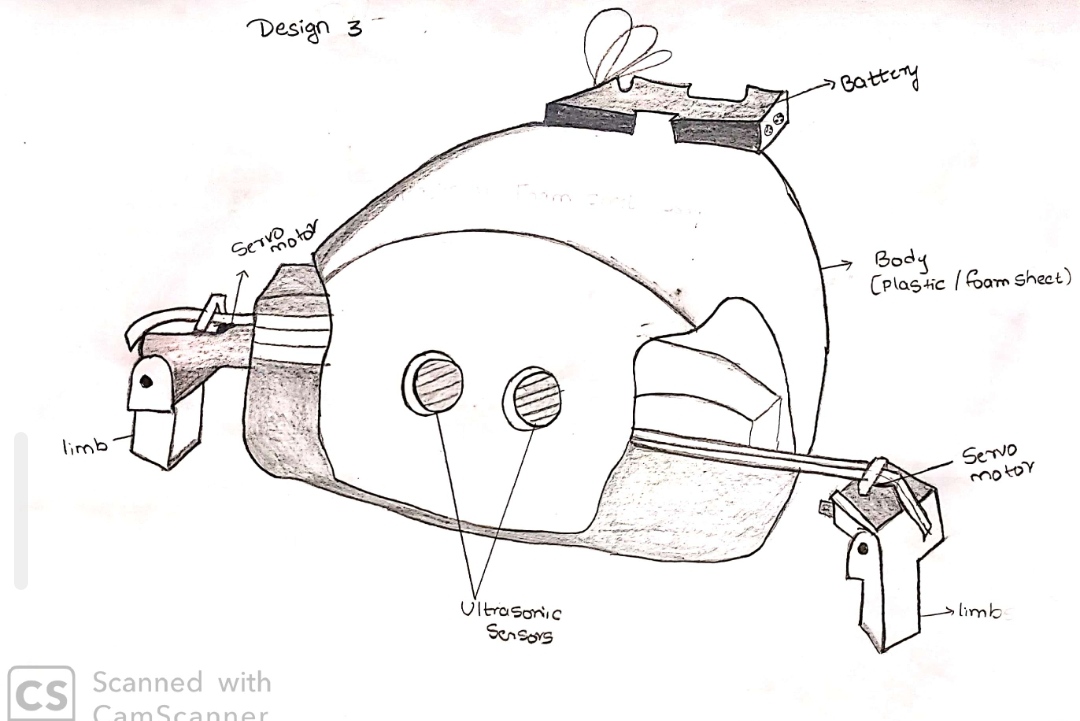 Design 3
Battery
Servo
motor
Body
(Plastic / foam sheet)
limb
Servo
motor
limb
Ultrasonic
Sensors
CS
Scanned with
CamScanner